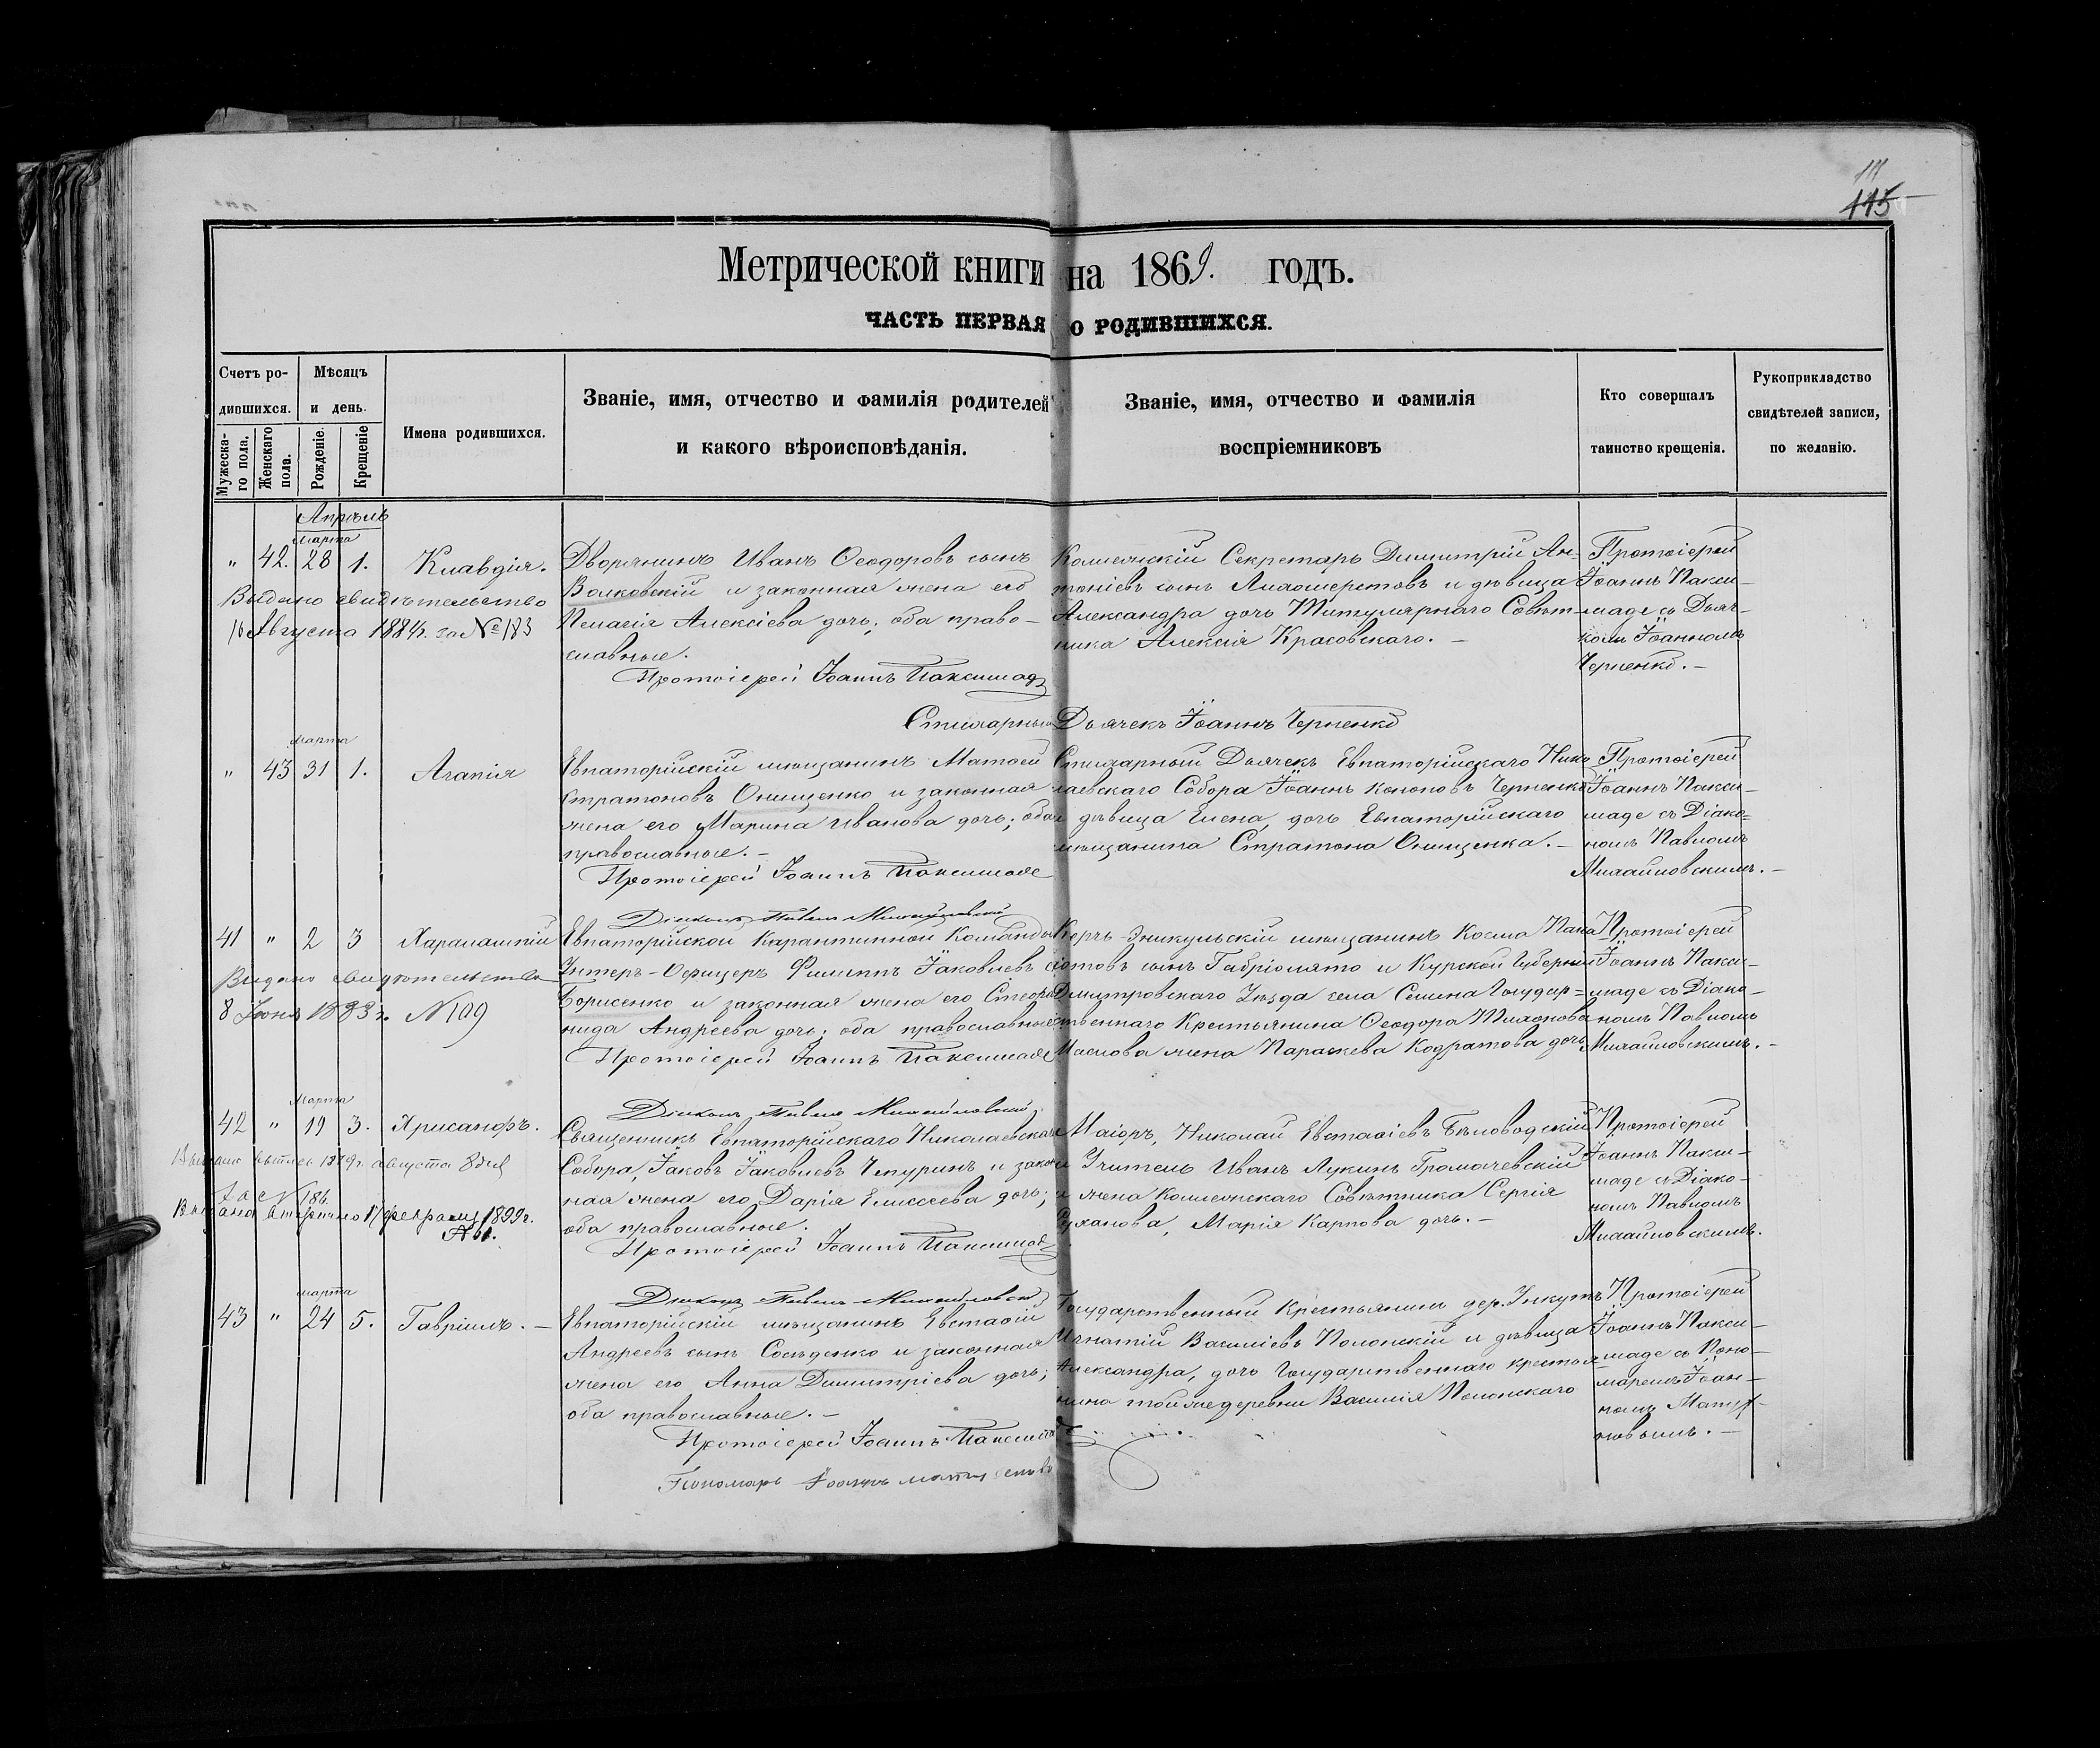 111
115
Метрической книги на 1869. годъ.
ЧАСТЬ ПЕРВАЯ О РОДИВШИХСЯ.
Счетъ родившихся.
Мужескаго пола.
Женскаго пола.
Мѣсяцъ и день.
Рожденіе.
Крещеніе
Имена родившихся.
Званіе, имя, отчество и фамилія родителей
и какого вѣроисповѣданія.
Званіе, имя, отчество и фамилія
воспріемниковъ
Кто совершалъ
таинство крещенія.
Рукоприкладство
свидѣтелей записи,
по желанію.
Апрѣль
марта
" 42. 28 1. Клавдія.
Выдано свидѣтельство
16 Августа 1884г. за № 183
Дворянинъ Иванъ Ѳеодоровъ сынъ
Волковскій и законная жена его
Пелагія Алексіева дочь; оба право-
славные.
Протоіерей Іоаннъ Паксимаде
Коллежскій Секретарь Димитрій Ан-
тоніевъ сынъ и дѣвица
Александра дочь Титулярнаго Совѣт-
ника Алексія Красовскаго. -
Протоіерей
Іоаннъ Пакси-
маде съ Дьяч-
комъ Іоанномъ
Черненко. -
Стихарный Дьячекъ Іоаннъ Черненко
марта
" 43 31 1. Агапія
Евпаторійскій мѣщанинъ Матѳей
Стратоновъ Онищенко и законная
жена его Марина Иванова дочь; оба
православные. -
Протоіерей Іоаннъ Паксимаде
Стихарный Дьячекъ Евпаторійскаго Нико-
лаевскаго Собора Іоаннъ Кононовъ Черненко
и дѣвица Елена, дочь Евпаторійскаго
мѣщанина Стратона Онищенка. -
Протоіерей
Іоаннъ Пакси-
маде съ Діако=
номъ Павломъ
Михайловскимъ. -
Діаконъ Павелъ Михайловскій
41 " 2 3 Харалампій
Выдано свидѣтельство
8 Іюня 1883 г. № 109
Евпаторійской Карантинной Команды
Унтеръ-Офицеръ Филиппъ Іаковлевъ с
Борисенко и законная жена его Стефа
нида Андреева дочь; оба православные
Протоіерей Іоаннъ Паксимаде
Керчь-Эникульскій мѣщанинъ Косма Пана
іотовъ сынъ Габріолято и Курской Губерніи
Дмитровскаго Уѣзда села Селина Государ=
ственнаго Крестьянина Ѳеодора Тихонова
Маслова жена Параскева Кодратова дочь
Протоіерей
Іоаннъ Пакси-
маде съ Діако-
номъ Павломъ
Михайловскимъ. -
Діаконъ Павелъ Михайловскій
Марта
42 " 19 3. Хрисанфъ.
августа 8 дня
за № 186.
Выдана вторично 17 февраля 1899г.
Священникъ Евпаторійскаго Николаевскаго
Собора, Іаковъ Іаковлевъ Чепуринъ и закон
ная жена его Дарія Елисеева дочь;
оба православные.
Протоіерей Іоаннъ Паксимаде
Маіоръ, Николай Евстаѳіевъ Бѣловодскій
Учитель Иванъ Лукинъ Громачевскій
и жена Коллежскаго Совѣтника Сергія
Суханова, Марія Карпова дочь. -
Протоіерей
Іоаннъ Пакси-
маде съ Діако-
номъ Павломъ
Михайловскимъ.
Діаконъ Павелъ Михайловскій
марта
43 " 24 5. Гавріилъ. -
Евпаторійскій мѣщанинъ Евстаѳій
Андреевъ сынъ Сосѣденко и законная
жена его Анна Димитріева дочь;
оба православные. -
Протоіерей Іоаннъ Паксимаде
Государственный Крестьянинъ дер.
Игнатій Василіевъ Полонскій и дѣвица
Александра, дочь Государственнаго крестья-
нина той же деревни Василія Полонскаго
Протоіерей
Іоаннъ Пакси-
маде съ Поно-
маремъ Іоан-
номъ
Пономарь Іоаннъ